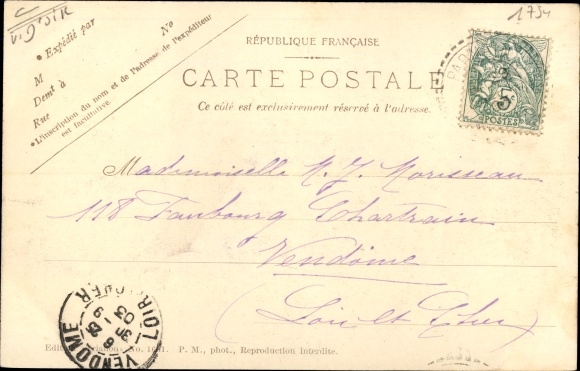 1754
V. g'sir
* Expédié par
No
M
Demt à
Rue
* L'inscription du nom et de l'adresse de l'expéditeur
est facultative.
RÉPUBLIQUE FRANÇAISE
CARTE POSTALE
Ce côté est exclusivement réservé à l'adresse.
PARIS
5
POSTES
Mademoiselle M. J. Morisseau
118 Faubourg Chartrain
Vendôme
(Loir et Cher)
VENDOME
LOIR CHER
03
Edit No. P. M., phot., Reproduction Interdite.